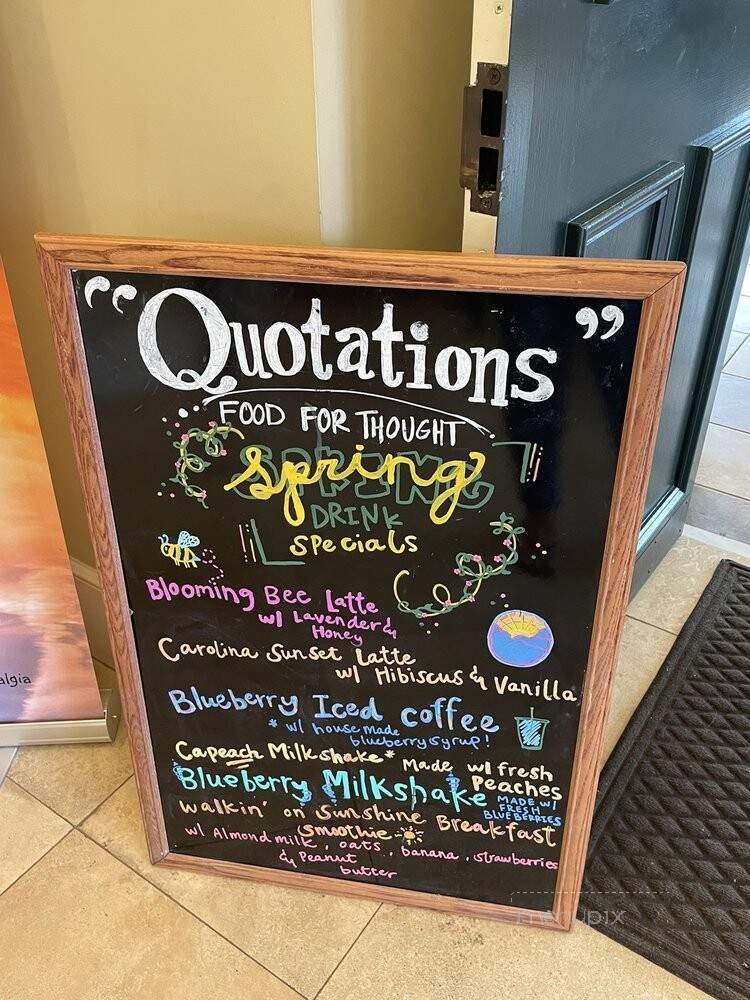 “Quotations”
FOOD FOR THOUGHT
spring
DRINK
specials
Blooming Bee Latte
w/ Lavender &
Honey
Carolina Sunset Latte
w/ Hibiscus & Vanilla
Blueberry Iced coffee
* w/ house made
blueberry syrup!
Capeach Milkshake* Made w/ fresh
Peaches
Blueberry Milkshake MADE W/
FRESH
BLUEBERRIES
Walkin' on Sunshine Breakfast
Smoothie
w/ Almond milk, oats, banana, strawberries
& Peanut
butter
algia
menupix